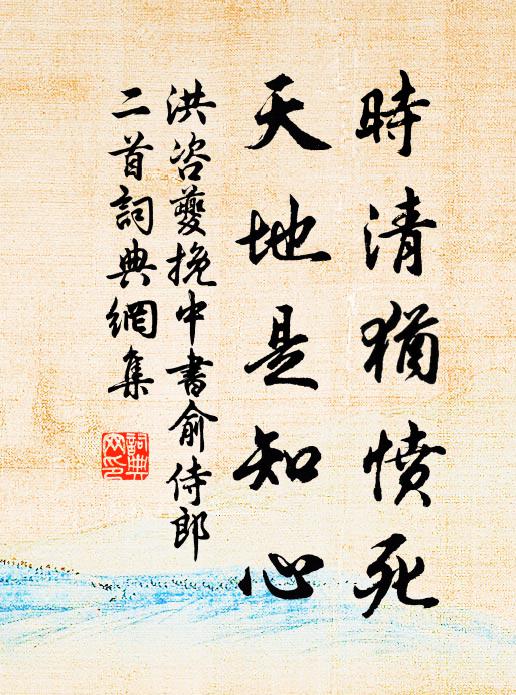 時清猶憤死
天地是知心
洪咨夔挽中書俞侍郎
二首詞典網集
詞典
网印